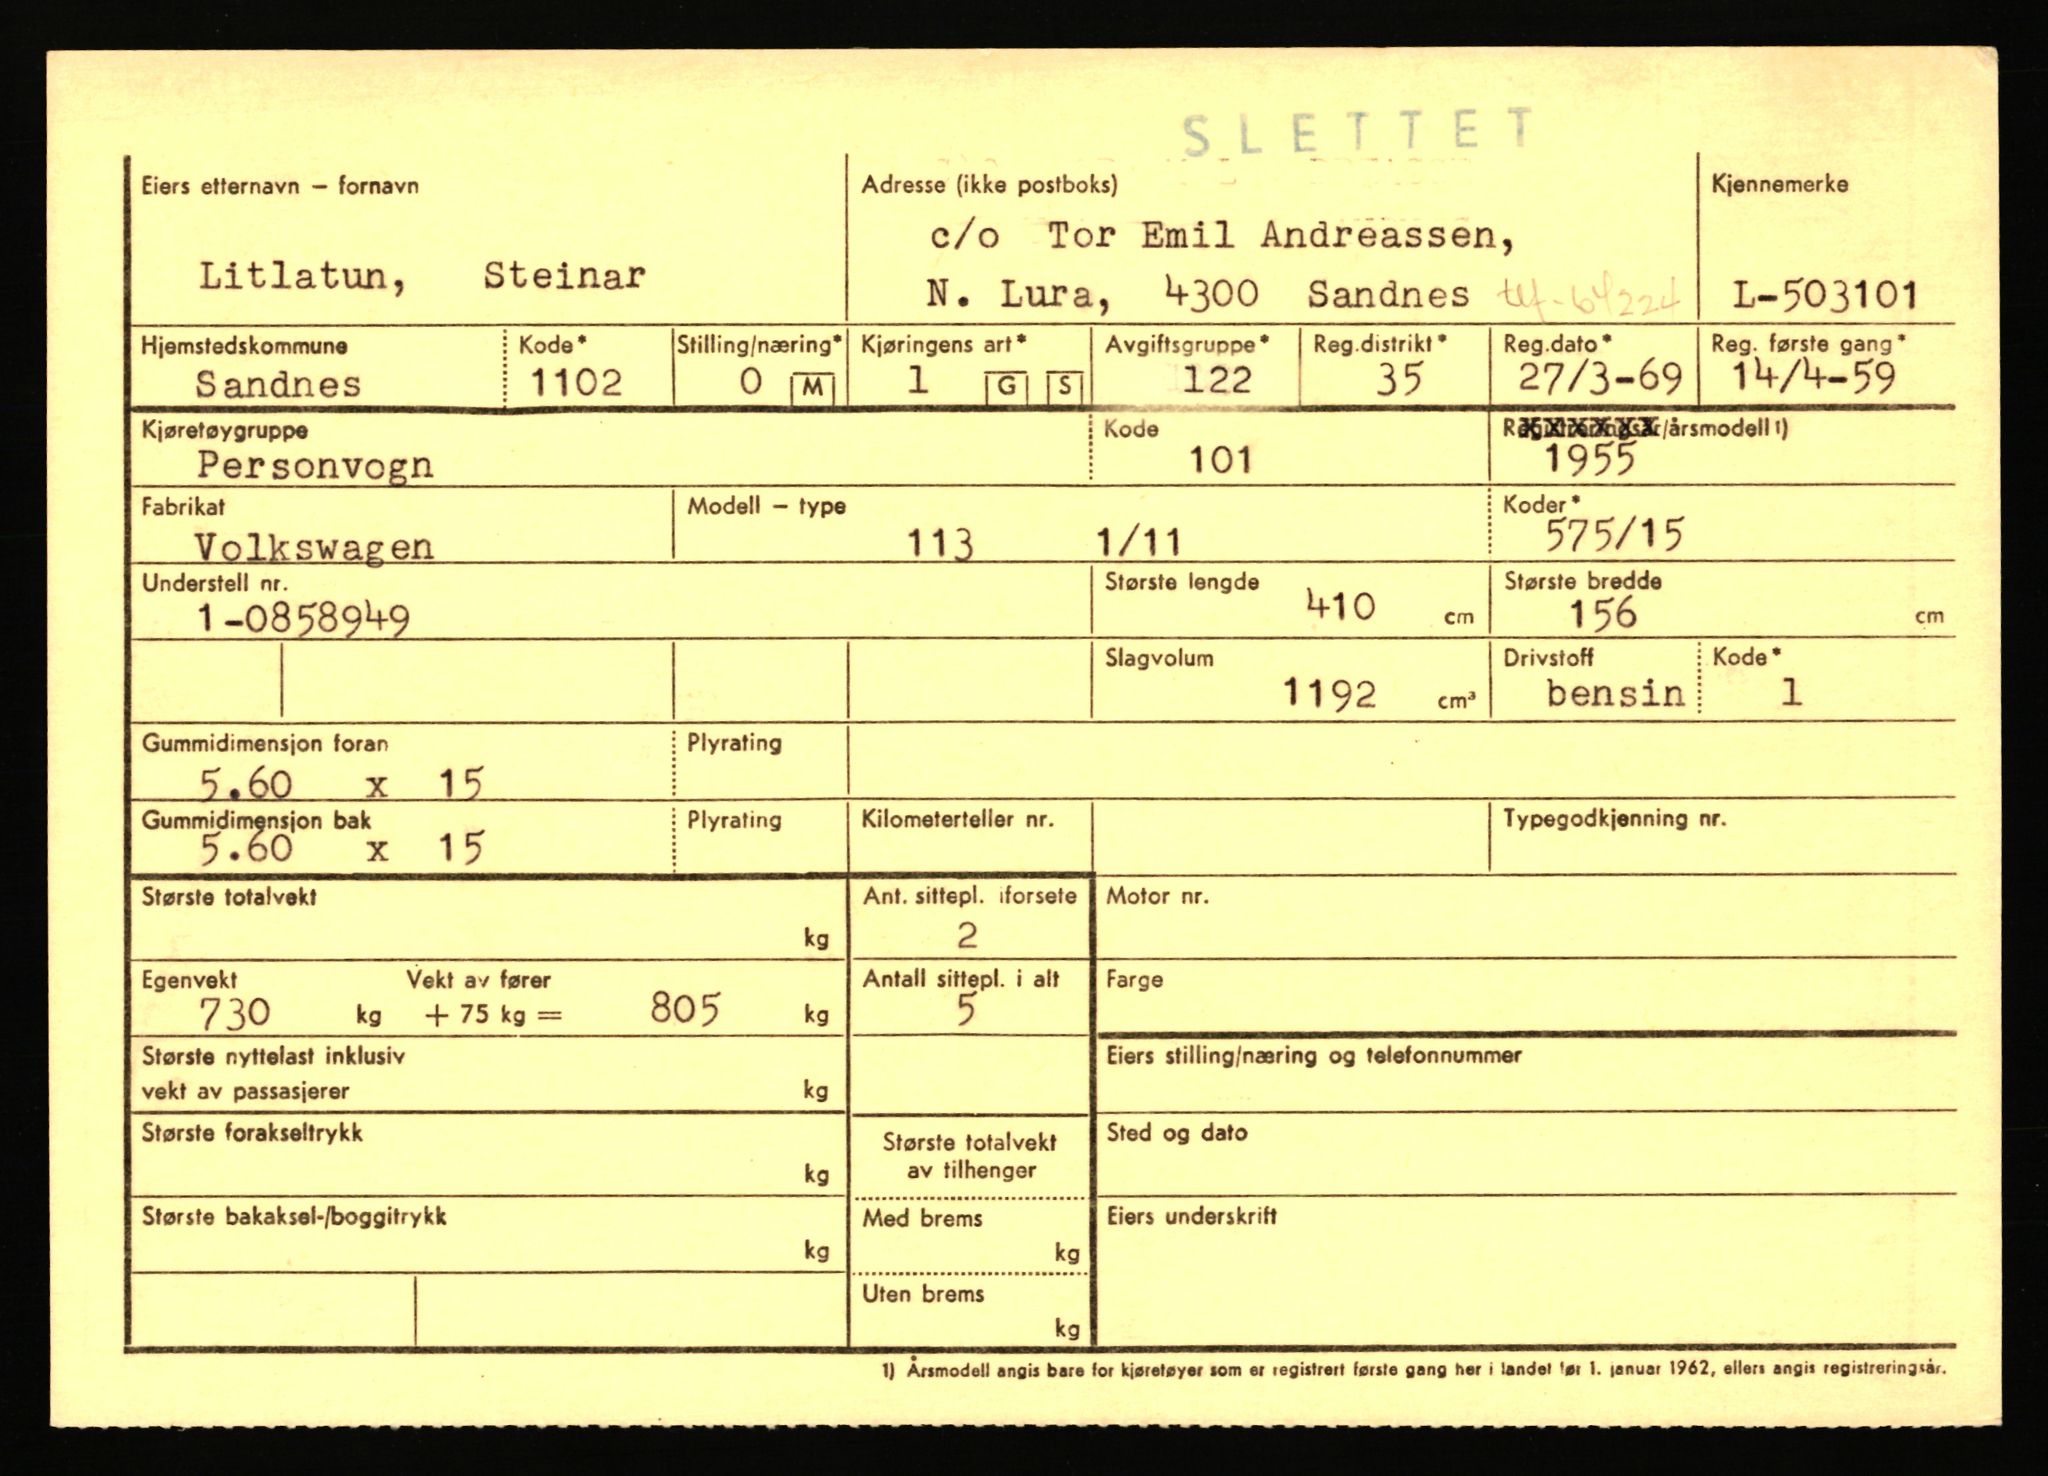 SLETTET
Eiers etternavn – fornavn
Adresse (ikke postboks)
Kjennemerke
c/o Tor Emil Andreassen,
Litlatun, Steinar
N. Lura, 4300 Sandnes
L-503101
Hjemstedskommune
Kode*
Stilling/næring*
Kjøringens art*
Avgiftsgruppe*
Reg.distrikt*
Reg.dato*
Reg. første gang*
Sandnes
1102
0 M
1 G S
122
35
27/3-69
14/4-59
Kjøretøygruppe
Kode
Registreringsår/årsmodell 1)
Personvogn
101
1955
Fabrikat
Modell – type
Koder*
Volkswagen
113 1/11
575/15
Understell nr.
Største lengde
Største bredde
1-0858949
410 cm
156 cm
Slagvolum
Drivstoff
Kode*
1192 cm³
bensin
1
Gummidimensjon foran
Plyrating
5.60 x 15
Gummidimensjon bak
Plyrating
Kilometerteller nr.
Typegodkjenning nr.
5.60 x 15
Største totalvekt
Ant. sittepl. iforsete
Motor nr.
kg
2
Egenvekt
Vekt av fører
Antall sittepl. i alt
Farge
730 kg + 75 kg = 805 kg
5
Største nyttelast inklusiv
Eiers stilling/næring og telefonnummer
vekt av passasjerer kg
Største forakseltrykk
Sted og dato
Største totalvekt
av tilhenger
kg
Største bakaksel-/boggitrykk
Med brems
Eiers underskrift
kg
kg
Uten brems
kg
1) Årsmodell angis bare for kjøretøyer som er registrert første gang her i landet før 1. januar 1962, ellers angis registreringsår.